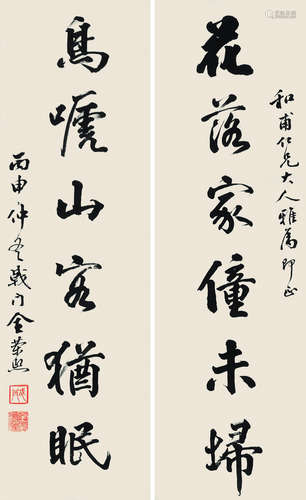 和甫仁兄大人雅属即正
花落家僮未埽
鳥嗁山客猶眠
丙申仲冬戟门金榮熙